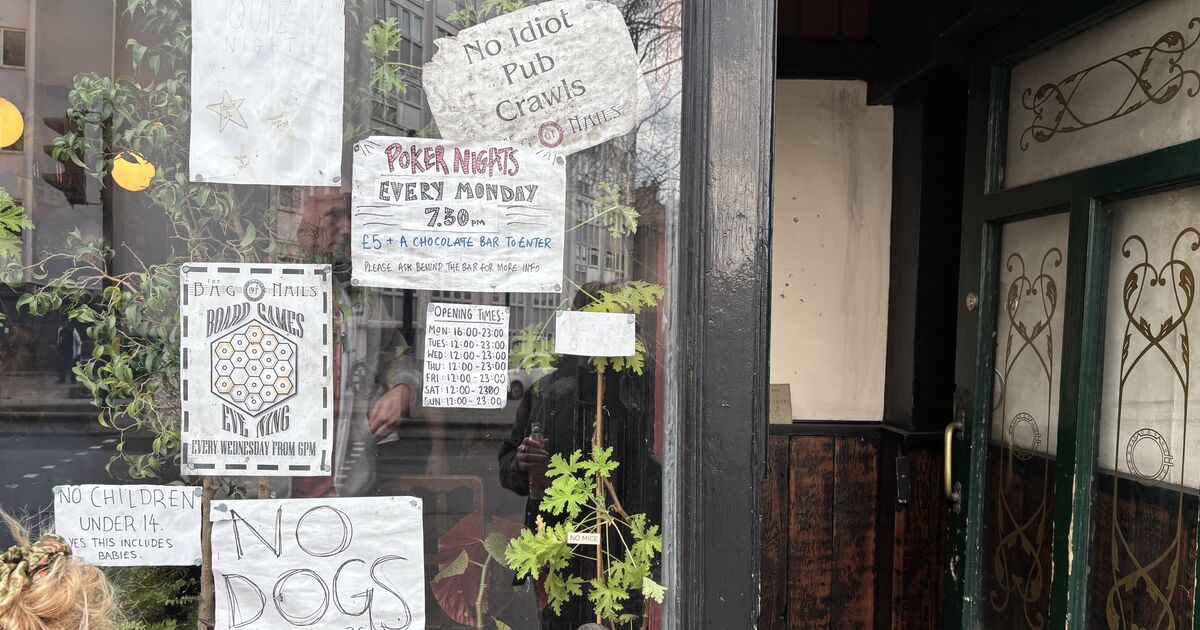 QUIZ
NIGHT
No Idiot
Pub
Crawls
OF NAILS
POKER NIGHTS
EVERY MONDAY
7.30 PM
£5 + A CHOCOLATE BAR TO ENTER
PLEASE ASK BEHIND THE BAR FOR MORE INFO
THE
BAG OF NAILS
BOARD GAMES
EVENING
EVERY WEDNESDAY FROM 6PM
OPENING TIMES:
MON: 16:00-23:00
TUES: 12:00-23:00
WED: 12:00-23:00
THU: 12:00-23:00
FRI: 12:00-23:00
SAT: 12:00-23:00
SUN: 12:00-23:00
NO CHILDREN
UNDER 14.
YES THIS INCLUDES
BABIES.
NO
DOGS
NO MICE